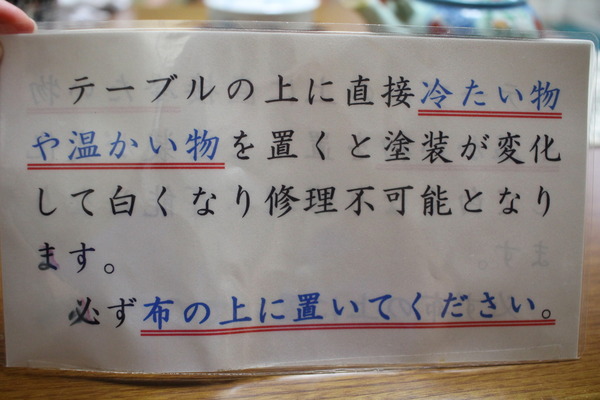 テーブルの上に直接冷たい物
や温かい物を置くと塗装が変化
して白くなり修理不可能となり
ます。
必ず布の上に置いてください。